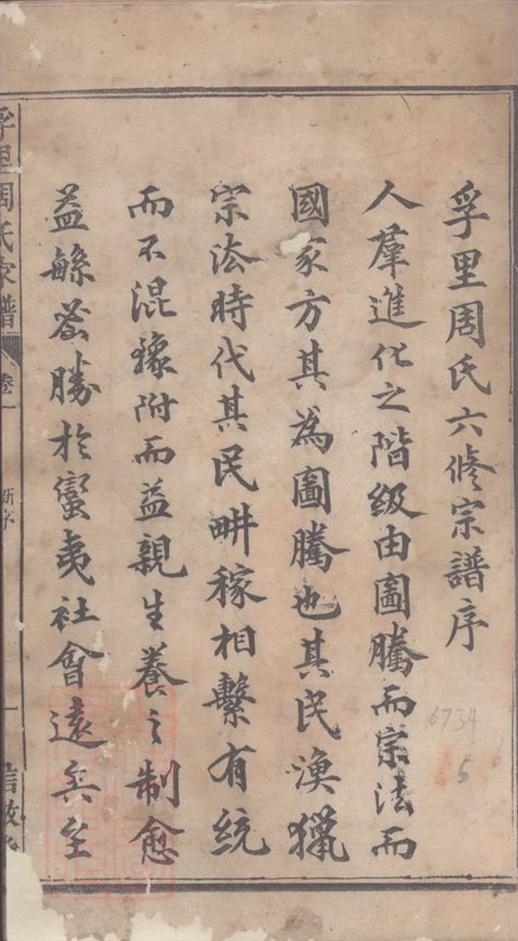 孚里周氏六修宗譜序
人羣進化之階級由圖騰而宗法而
國家方其為圖騰也其民漁獵
宗法時代其民畊稼相繫有統
而不混豫附而益親生養之制愈
益緜密勝於蠻夷社會遠矣至
孚里周氏家譜
卷一
新序
一
6734
5